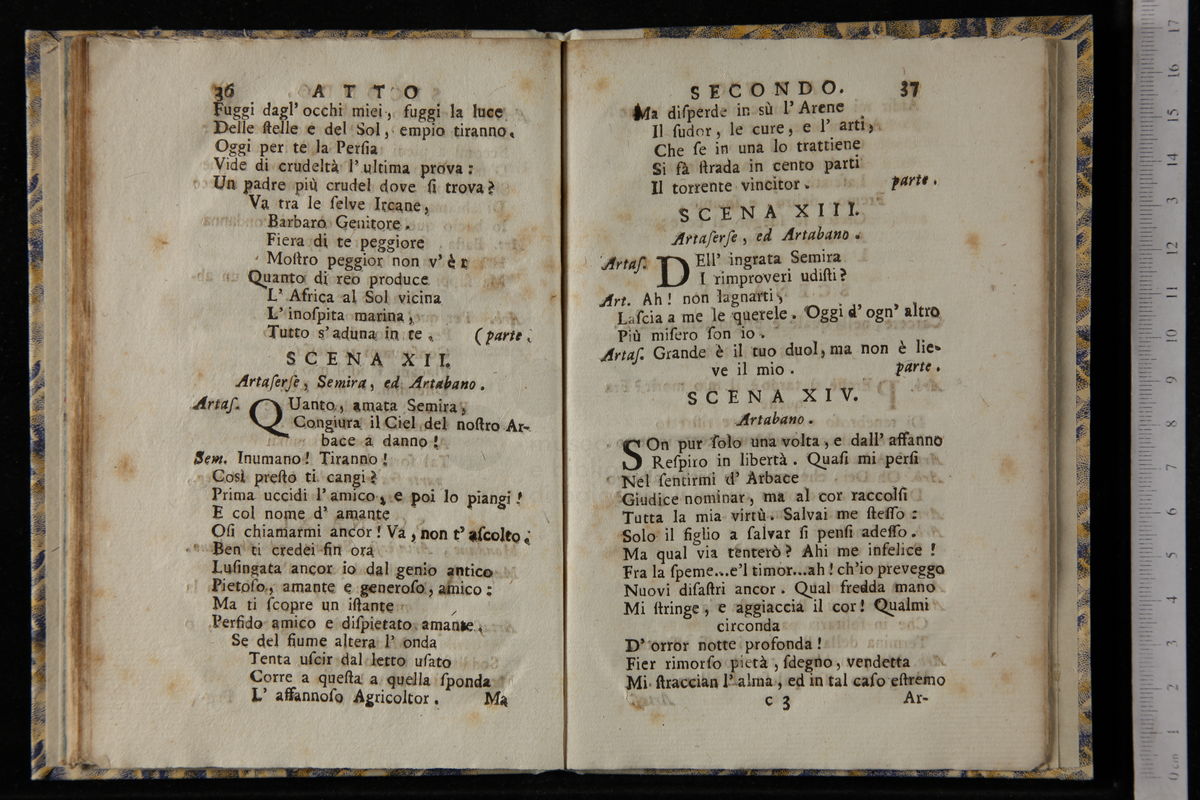 36 ATTO
Fuggi dagl' occhi miei, fuggi la luce
Delle ſtelle e del Sol, empio tiranno.
Oggi per te la Perſia
Vide di crudeltà l'ultima prova:
Un padre più crudel dove ſi trova?
Va tra le ſelve Ircane,
Barbaro Genitore.
Fiera di te peggiore
Moſtro peggior non v'è:
Quanto di reo produce
L' Africa al Sol vicina
L' inoſpita marina,
Tutto s'aduna in te. (parte.
SCENA XII.
Artaſerſe, Semira, ed Artabano.
Artaſ. QUanto, amata Semira,
Congiura il Ciel del noſtro Ar-
bace a danno!
Sem. Inumano! Tiranno!
Così preſto ti cangi?
Prima uccidi l'amico, e poi lo piangi!
E col nome d' amante
Oſi chiamarmi ancor! Va, non t' aſcolto.
Ben ti credei fin ora
Luſingata ancor io dal genio antico
Pietoſo, amante e generoſo, amico:
Ma ti ſcopre un iſtante
Perfido amico e diſpietato amante.
Se del fiume altera l' onda
Tenta uſcir dal letto uſato
Corre a queſta a quella ſponda
L' affannoſo Agricoltor. Ma
SECONDO. 37
Ma diſperde in sù l' Arene
Il ſudor, le cure, e l' arti,
Che ſe in una lo trattiene
Si fà ſtrada in cento parti
Il torrente vincitor. parte.
SCENA XIII.
Artaſerſe, ed Artabano.
Artaſ. DEll' ingrata Semira
I rimproveri udiſti?
Art. Ah! non lagnarti,
Laſcia a me le querele. Oggi d' ogn' altro
Più miſero ſon io.
Artaſ. Grande è il tuo duol, ma non è lie-
ve il mio. parte.
SCENA XIV.
Artabano.
SOn pur ſolo una volta, e dall' affanno
Reſpiro in libertà. Quaſi mi perſi
Nel ſentirmi d' Arbace
Giudice nominar, ma al cor raccolſi
Tutta la mia virtù. Salvai me ſteſſo:
Solo il figlio a ſalvar ſi penſi adeſſo.
Ma qual via tenterò? Ahi me infelice!
Fra la ſpeme...e'l timor...ah! ch'io preveggo
Nuovi diſaſtri ancor. Qual fredda mano
Mi ſtringe, e aggiaccia il cor! Qualmi
circonda
D' orror notte profonda!
Fier rimorſo pietà, ſdegno, vendetta
Mi ſtraccian l'alma, ed in tal caſo eſtremo
C 3 Ar-
17
16
15
14
13
12
11
10
9
8
7
6
5
4
3
2
1
0 cm